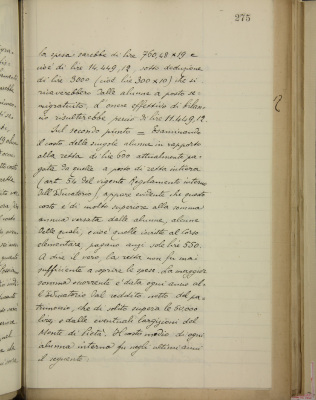 275
la spesa sarebbe di lire 760,48 x 19 e
cioè di lire 14.449,12, sotto deduzione
di lire 3000 (cioè lire 300 x 10) che si
ricaverebbero dalle alunne a posto se-
migratuito. L'onere effettivo di bilan-
cio risulterebbe perciò di lire 11.449,12.
Sul secondo punto = Esaminando
il costo delle singole alunne in rapporto
alla retta di lire 600 attualmente pa-
gata da quelle a posto di retta intera
(art. 54 del vigente Regolamento interno
dell'Educatorio) appare evidente che questo
costo è di molto superiore alla somma
annua versata dalle alunne, alcune
delle quali, cioè quelle iscritte al corso
elementare, pagano anzi sole lire 550.
A dire il vero, la retta non fu mai
sufficiente a coprire le spese. La maggior
somma occorrente è data ogni anno al-
l'Educatorio dal reddito netto del pa-
trimonio, che di solito supera le
lire, e dalle eventuali largizioni del
Monte di Pietà. Il costo medio di ogni
alunna interna fu negli ultimi anni
il seguente: